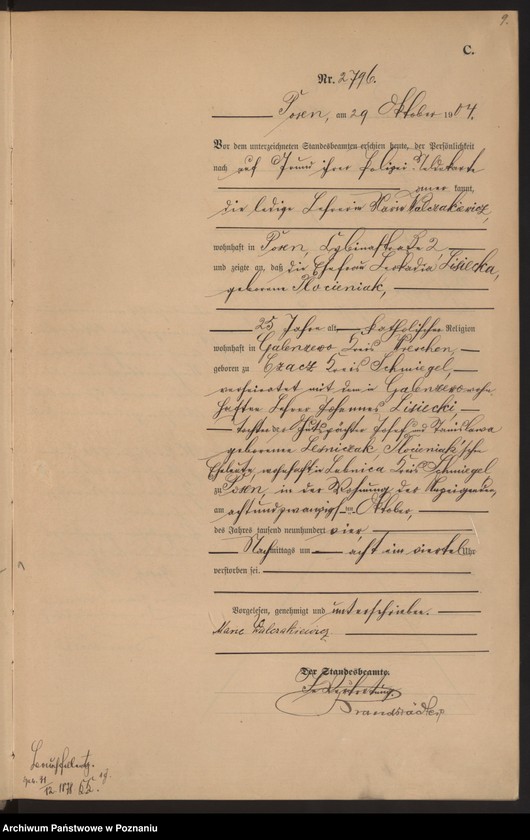 9.
C.
Nr. 2796.
Posen, am 29 Oktober 1904.
Vor dem unterzeichneten Standesbeamten erschien heute, der Persönlichkeit
nach auf Grund ihrer Polizei Meldekarte
kannt,
die ledige Lehrerin Marie Walczakiewicz,
wohnhaft in Posen, Cybinastraße 2,
und zeigte an, daß die Ehefrau Leokadia Lisiecka,
geborene Kocieniak,
25 Jahre alt, katholischer Religion
wohnhaft in Galenzewo Kreis Wreschen,
geboren zu Czacz Kreis Schmiegel,
verheiratet mit dem in Galenzewo wohn-
haften Lehrer Johannes Lisiecki,
Tochter der Gutspächter Josef und Stanislawa
geborenne Lesniczak, Kocieniak'schen
Eheleute, wohnhaft in Kreis Schmiegel
zu Posen, in der Wohnung der Anzeigenden,
am achtundzwanzigsten Oktober,
des Jahres tausend neunhundert vier
Nachmittags um acht ein viertel Uhr
verstorben sei.
Vorgelesen, genehmigt und unterschrieben.
Marie Walczakiewicz
Der Standesbeamte.
In Vertretung.
Brandstädter
1878
Archiwum Państwowe w Poznaniu